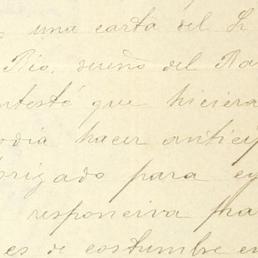 una carta del S
Rio, dueño del Ra
ntestó que hiciera
odia hacer anticip
brigado para ey
responsiva pra
es de costumbre en